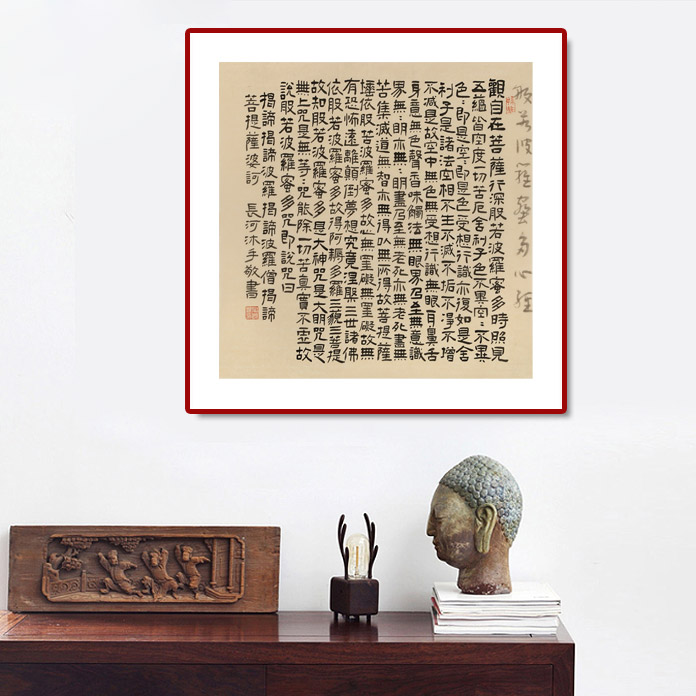 般若波羅蜜多心經
觀自在菩薩行深般若波羅蜜多時照見
五蘊皆空度一切苦厄舍利子色不異空〻不異
色〻即是空〻即是色受想行識亦復如是舍
利子是諸法空相不生不滅不垢不淨不增
不減是故空中無色無受想行識無眼耳鼻舌
身意無色聲香味觸法無眼界乃至無意識
界無〻明亦無〻明盡乃至無老死亦無老死盡無
苦集滅道無智亦無得以無所得故菩提薩
埵依般若波羅蜜多故心無罣礙無罣礙故無
有恐怖遠離顛倒夢想究竟涅槃三世諸佛
依般若波羅蜜多故得阿耨多羅三藐三菩提
故知般若波羅蜜多是大神咒是大明咒是
無上咒是無等〻咒能除一切苦真實不虛故
說般若波羅蜜多咒即說咒曰
揭諦揭諦波羅揭諦波羅僧揭諦
菩提薩婆訶 長河沐手敬書